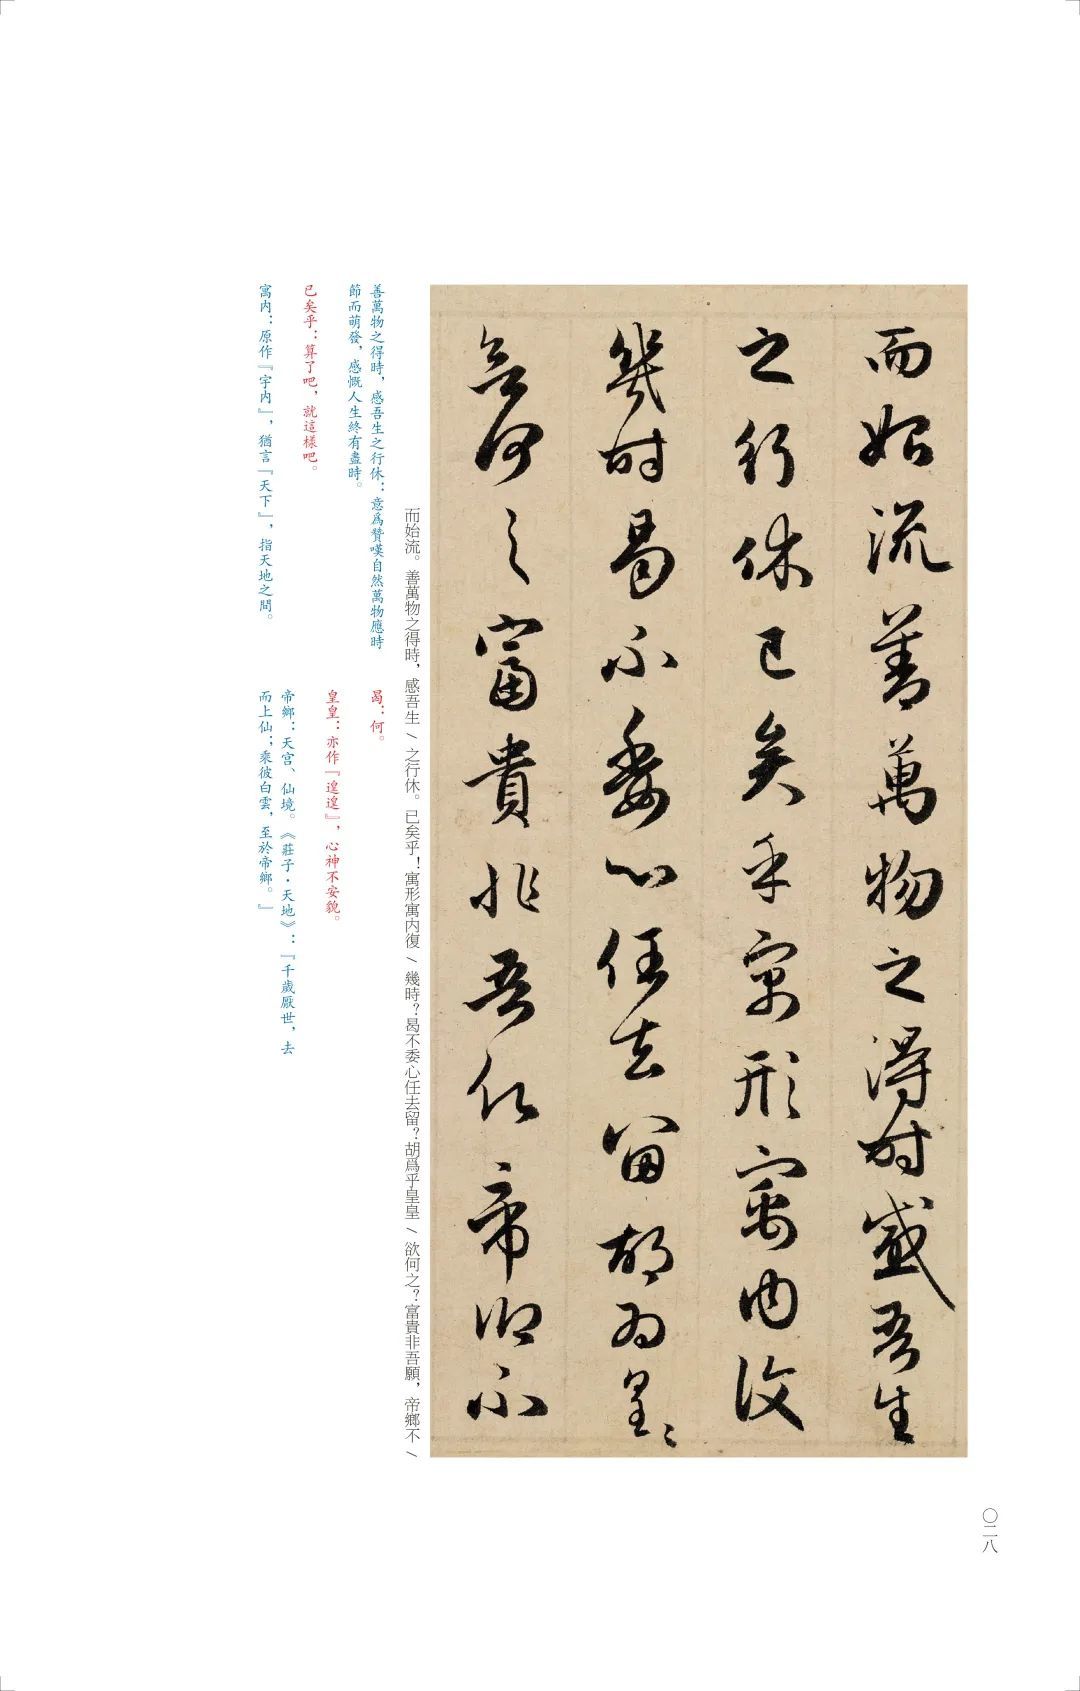 而始流善萬物之得時感吾生
之行休已矣乎寓形寓内復
幾時曷不委心任去留胡爲皇〻
欲何之富貴非吾願帝鄉不
而始流。善萬物之得時，感吾生 \ 之行休。已矣乎！寓形寓内復 \ 幾時？曷不委心任去留？胡爲乎皇皇 \ 欲何之？富貴非吾願，帝鄉不 \
善萬物之得時，感吾生之行休：意爲贊嘆自然萬物應時
節而萌發，感慨人生終有盡時。
已矣乎：算了吧，就這樣吧。
寓内：原作『宇内』，猶言『天下』，指天地之間。
曷：何。
皇皇：亦作『遑遑』，心神不安貌。
帝鄉：天宫、仙境。《莊子·天地》：『千歲厭世，去
而上仙；乘彼白雲，至於帝鄉。』
〇二八